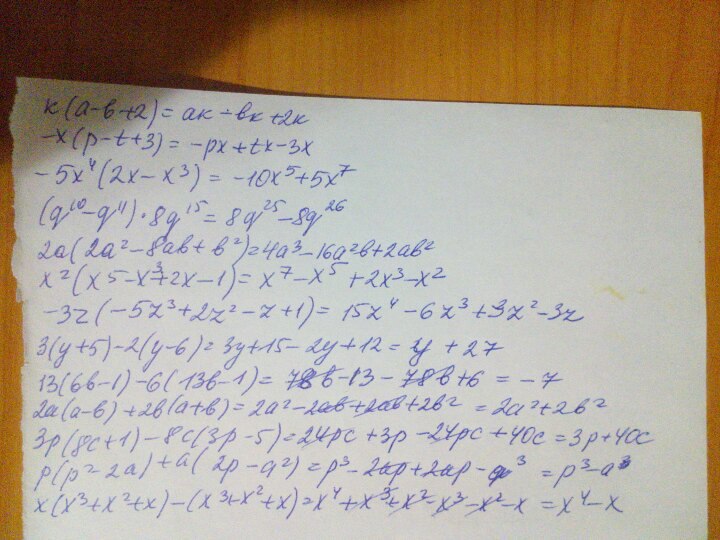 к(a-b+2)= ак-bк+2к
-x(p-t+3)= -px+tx-3x
-5x⁴(2x-x³)= -10x⁵+5x⁷
(q¹⁰-q¹¹)·8q¹⁵= 8q²⁵-8q²⁶
2a(2a²-8ab+b²)=4a³-16a²b+2ab²
x²(x5-x³+2x-1)= x⁷-x⁵+2x³-x²
-3z(-5z³+2z²-z+1)= 15z⁴-6z³+3z²-3z
3(y+5)-2(y-6)=3y+15-2y+12= y+27
13(6b-1)-6(13b-1)= 78b-13-78b+6 = -7
2a(a-b)+2b(a+b)= 2a²-2ab+2ab+2b² = 2a²+2b²
3p(8c+1)-8c(3p-5)=24pc+3p-24pc+40c=3p+40c
p(p²-2a)+a(2p-a²)= p³-2ap+2ap-a³ = p³-a³
x(x³+x²+x)-(x³+x²+x)=x⁴+x³+x²-x³-x²-x = x⁴-x